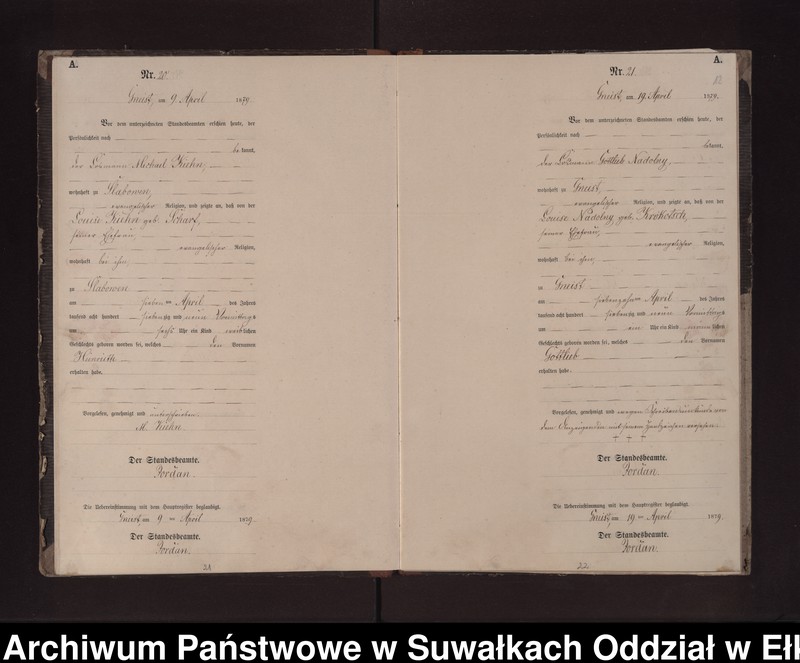 A.
Nr. 20
Gneist, am 9 April 1879.
Vor dem unterzeichneten Standesbeamten erschien heute, der
Persönlichkeit nach
bekannt,
der Losmann Michael Kühn,
wohnhaft zu Slabowen,
evangelischer Religion, und zeigte an, daß von der
Louise Kühn geb. Scharf,
seiner Ehefrau,
evangelischer Religion,
wohnhaft bei ihm,
zu Slabowen
am sieben ten April des Jahres
tausend acht hundert siebenzig und neun Vormittags
um sechs Uhr ein Kind weiblichen
Geschlechts geboren worden sei, welches den Vornamen
Henriette
erhalten habe.
Vorgelesen, genehmigt und unterschrieben
M. Kühn
Der Standesbeamte.
Jordan.
Die Uebereinstimmung mit dem Hauptregister beglaubigt.
Gneist, am 9 ten April 1879
Der Standesbeamte.
Jordan.
21
A.
Nr. 21.
Gneist, am 19 April 1879.
Vor dem unterzeichneten Standesbeamten erschien heute, der
Persönlichkeit nach
bekannt,
der Losmann Gottlieb Nadolny,
wohnhaft zu Gneist,
evangelischer Religion, und zeigte an, daß von der
Louise Nadolny, geb. Krokotsch,
seiner Ehefrau,
evangelischer Religion,
wohnhaft bei ihm,
zu Gneist
am siebenzehn ten April des Jahres
tausend acht hundert siebenzig und neun Vormittags
um ein Uhr ein Kind männlichen
Geschlechts geboren worden sei, welches den Vornamen
Gottlieb
erhalten habe.
Vorgelesen, genehmigt und wegen Schreibensunkunde von
dem Anzeigenden mit seinem Handzeichen versehen.
† † †
Der Standesbeamte.
Jordan.
Die Uebereinstimmung mit dem Hauptregister beglaubigt.
Gneist, am 19 ten April 1879.
Der Standesbeamte.
Jordan.
22
Archiwum Państwowe w Suwałkach Oddział w Ełk